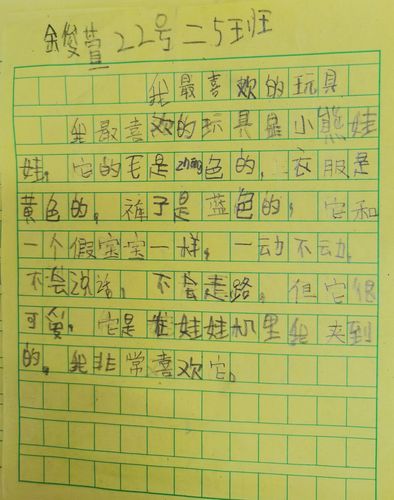 金俊萱 22号 二5班
我最喜欢的玩具
我最喜欢的玩具是小熊娃
娃。它的毛是色的,衣服是
黄色的,裤子是蓝色的,它和
一个假宝宝一样,一动不动,
不会说话,不会走路,但它很
可爱,它是在娃娃机里我夹到
的。我非常喜欢它。